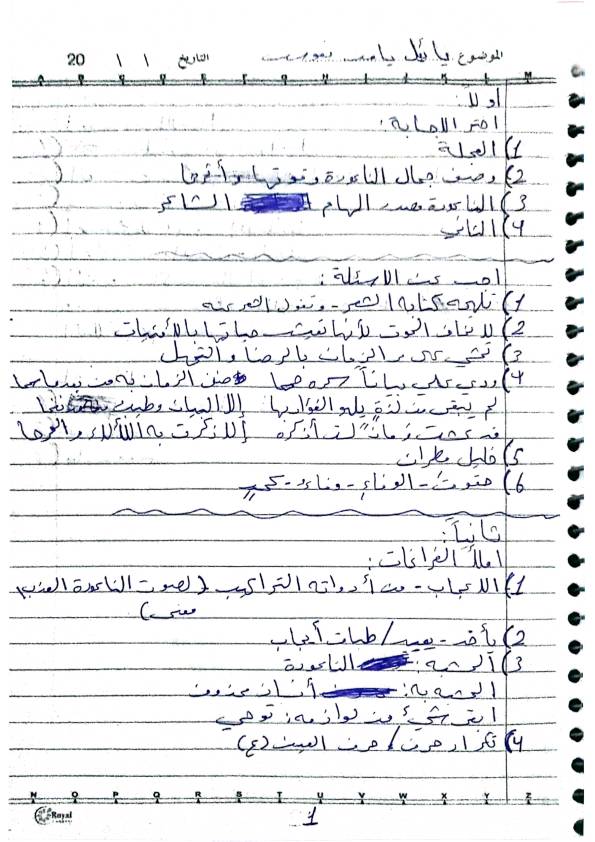 الموضوع يا ئل يا / / التاريخ 20
A B C D E F G H I J K L M
أولاً:
اختر الاجابة:
1) العجلة
2) وصف جمال الناعورة وقوتها وأثرها
3) الناعورة مصدر الهام الشاعر
4) الثاني
اجب عن الاسئلة:
1) تلهمه كتابة الشعر - وتقول الشعر عنه
2) لا تخاف الموت لأنها تعيش حياتها بالأمنيات
3) تمشي على مر الزمان بالرضا والتجمل
4) ردي علي بياناً صفى الزمان به من
لم يبقى من لذةٍ يلهو الفؤاد بها إلا البيان وطيب
قد عشت زماناً لست أذكره إلا ذكرت به اللألاء والفرحا
5) خليل مطران
6) - الوفاءِ - وفاءُ -
ثانياً:
املأ الفراغات:
1) الاعجاب - من أدواته التراكيب (لصوت الناعورة العذب
معنى)
2) يأخذ - يعيد / طباق أيجاب
3) المشبه: الناعورة
المشبه به: أنسان محذوف
ابقى شيءٌ من لوازمه: توحي
4) تكرار حرف / حرف العين (ع)
N O P Q R S T U V W X Y Z
Royal
1